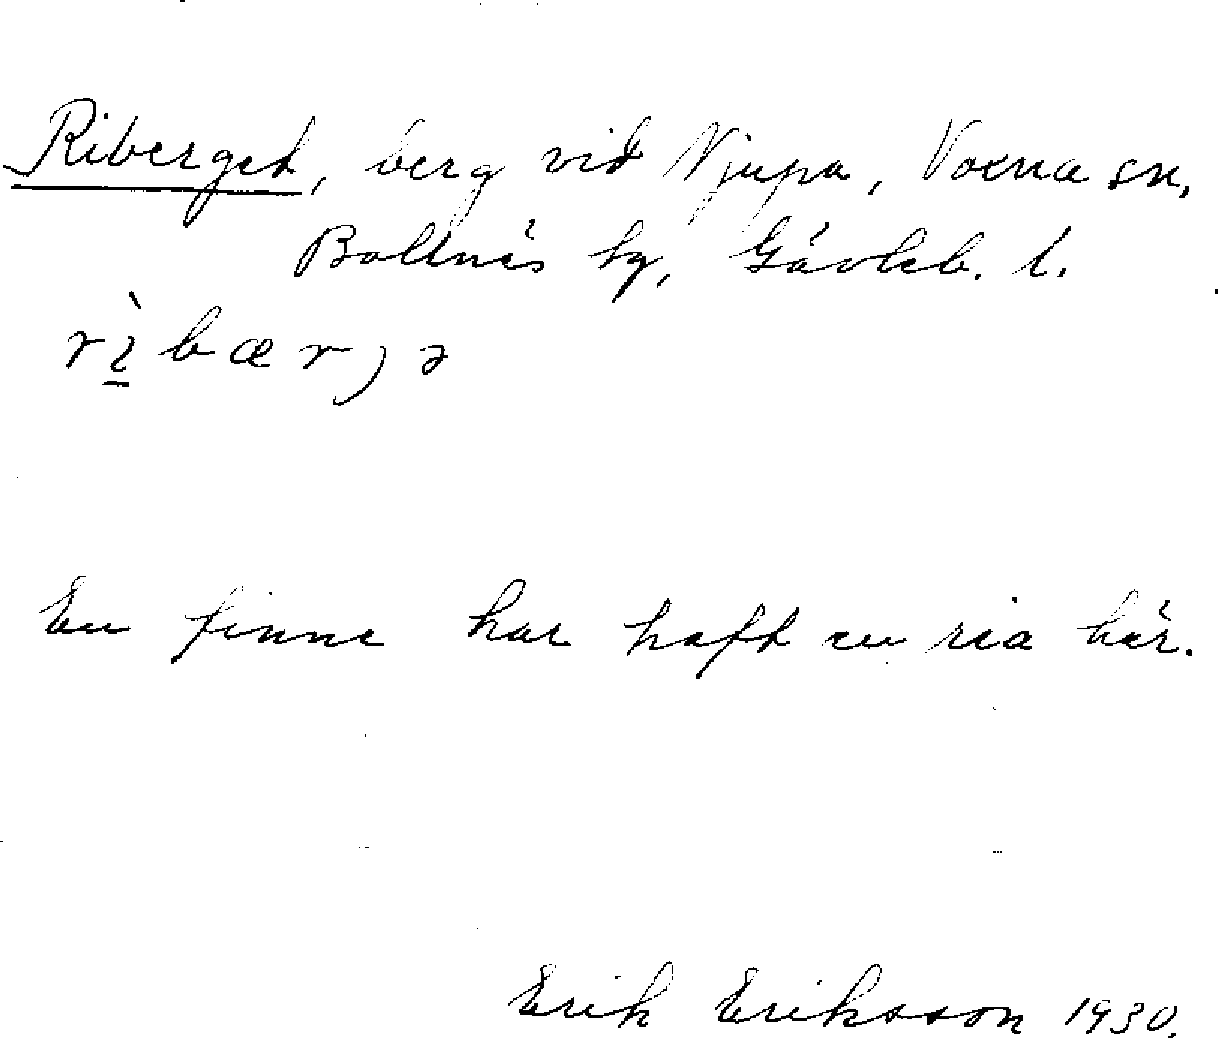 Riberget, berg vid Njupa, Voxna sn,
Bollnäs tg, Gävleb. l.
rì̠bærjə
En finne har haft en ria här.
Erik Eriksson 1930.